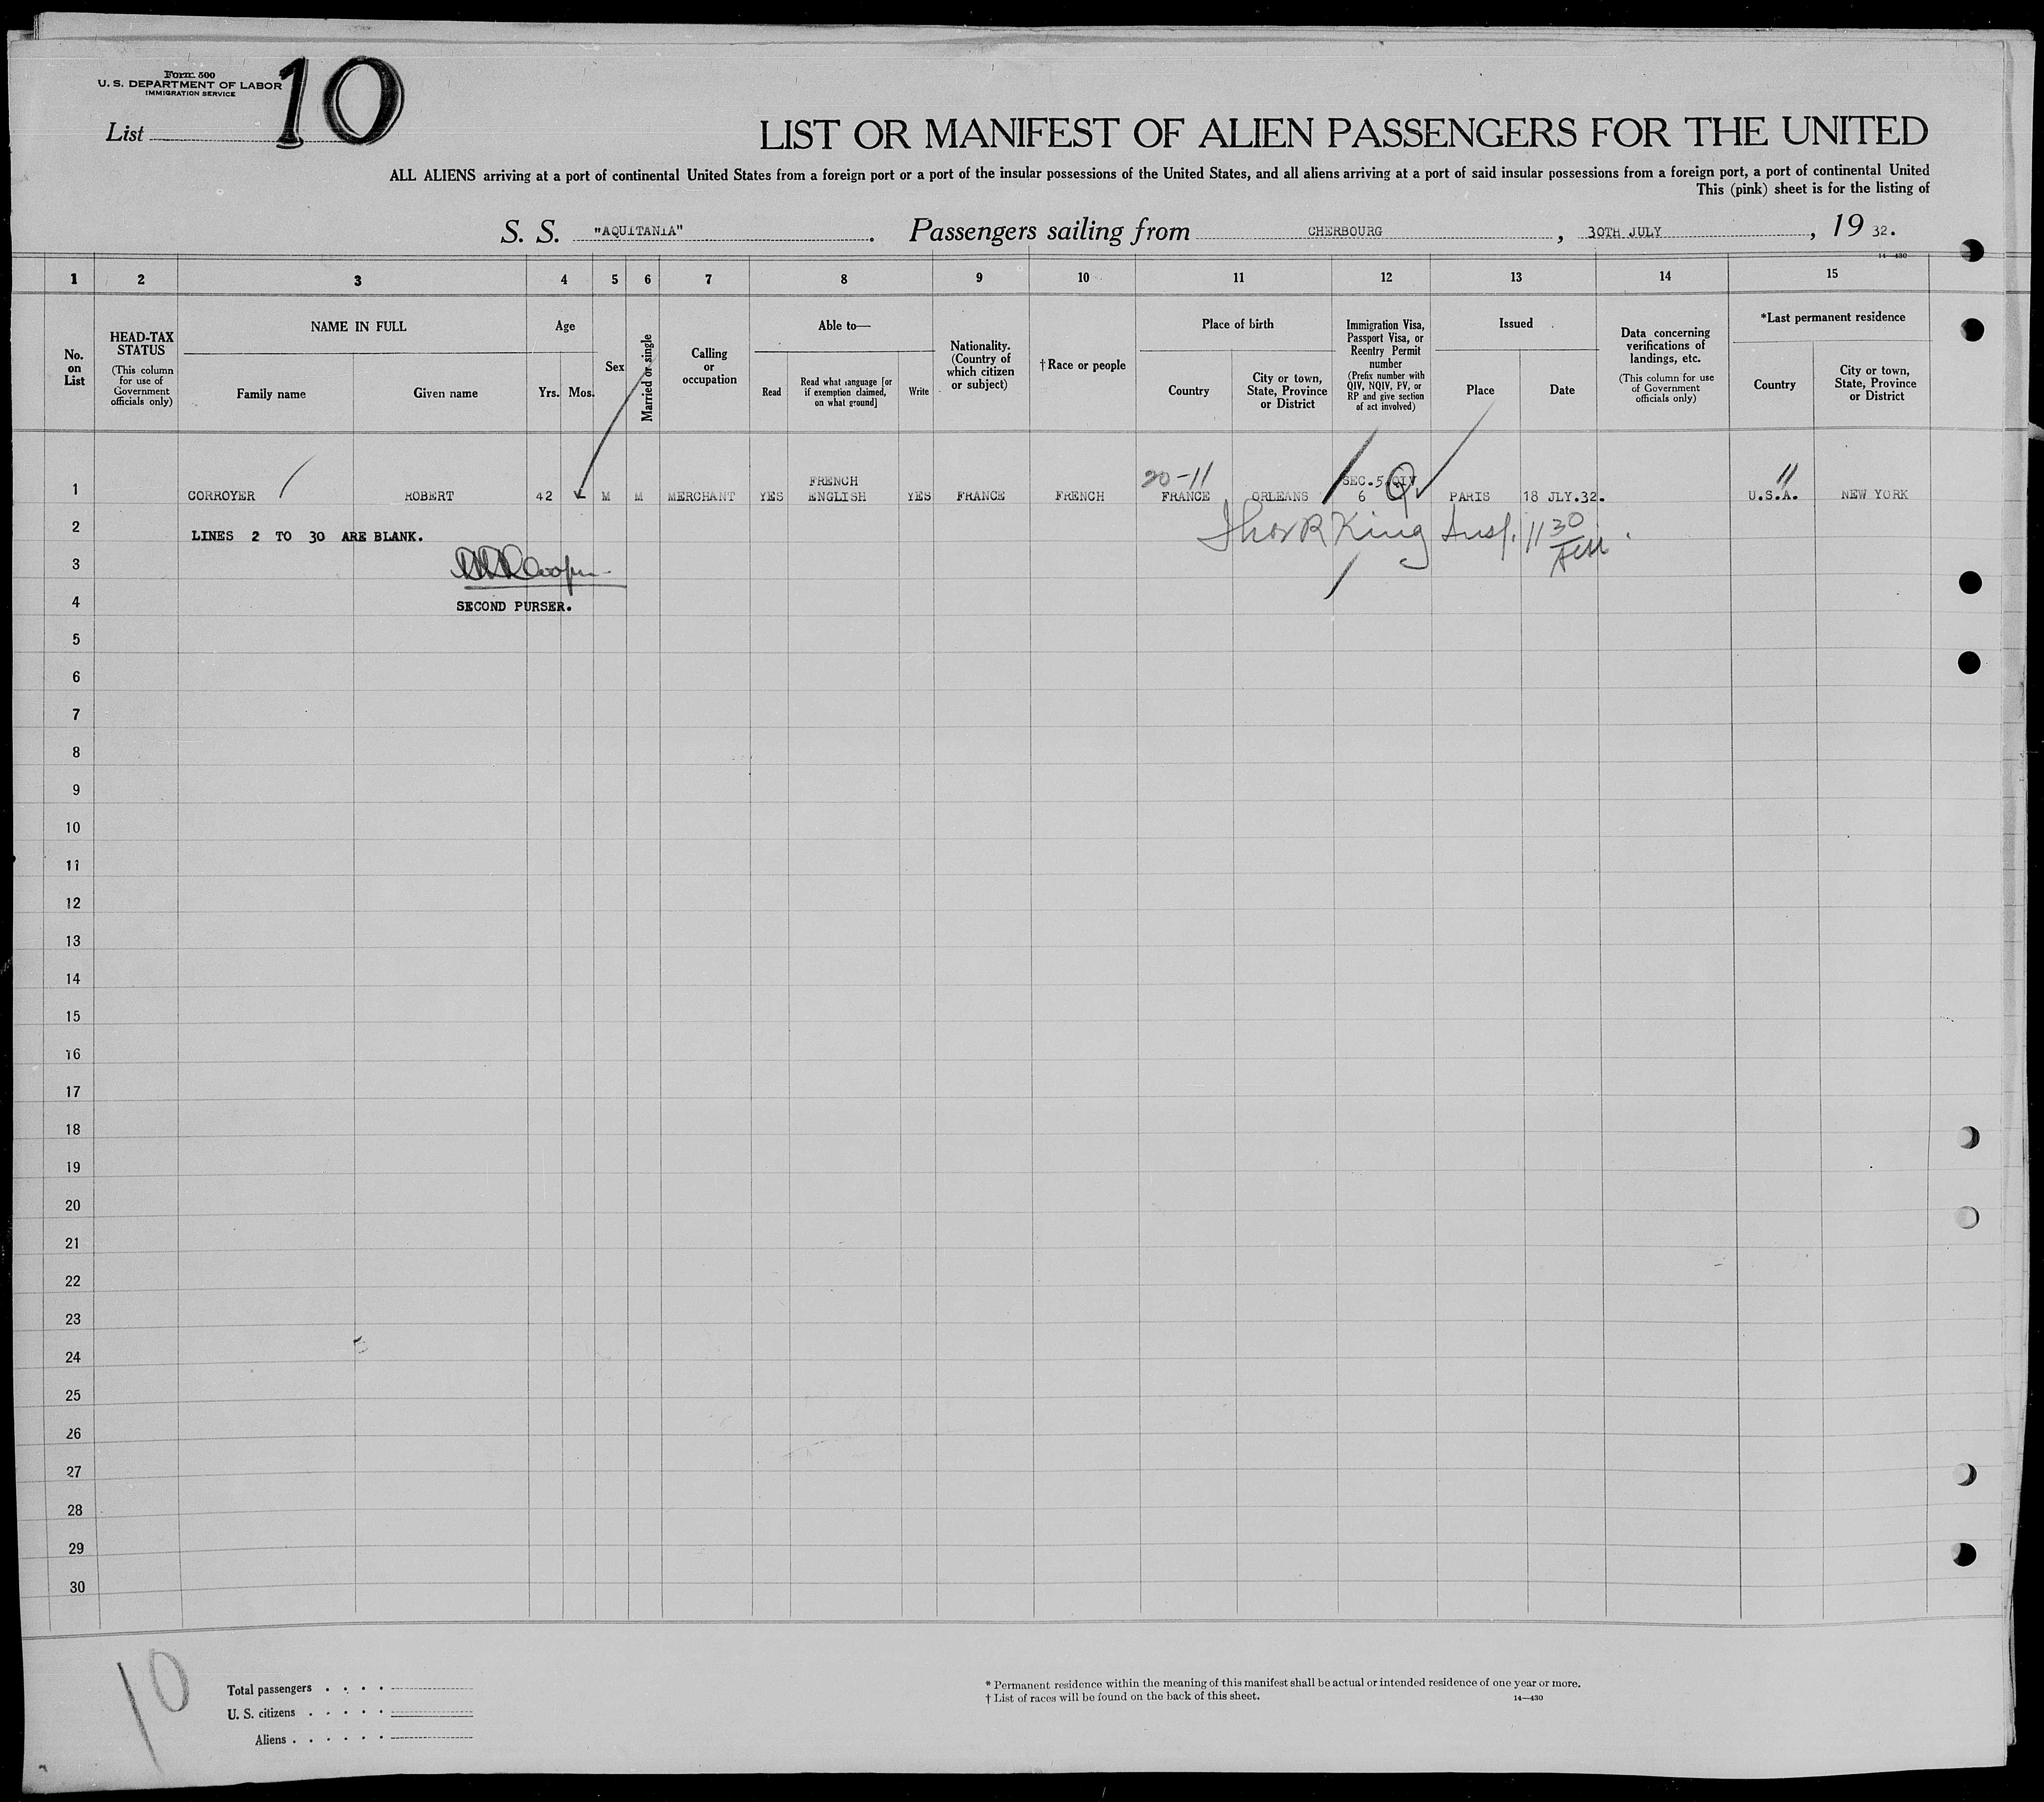 Form 500
U. S. DEPARTMENT OF LABOR
IMMIGRATION SERVICE
List 10
LIST OR MANIFEST OF ALIEN PASSENGERS FOR THE UNITED
ALL ALIENS arriving at a port of continental United States from a foreign port or a port of the insular possessions of the United States, and all aliens arriving at a port of said insular possessions from a foreign port, a port of continental United
This (pink) sheet is for the listing of
S. S. "AQUITANIA". Passengers sailing from CHERBOURG, 30TH JULY, 1932.
14—430
1 2 3 4 5 6 7 8 9 10 11 12 13 14 15
No. on List
HEAD-TAX STATUS (This column for use of Government officials only)
NAME IN FULL
Family name
Given name
Age
Yrs. Mos.
Sex
Married or single
Calling or occupation
Able to—
Read
Read what language [or if exemption claimed, on what ground]
Write
Nationality. (Country of which citizen or subject)
† Race or people
Place of birth
Country
City or town, State, Province or District
Immigration Visa, Passport Visa, or Reentry Permit number (Prefix number with QIV, NQIV, PV, or RP and give section of act involved)
Issued
Place
Date
Data concerning verifications of landings, etc. (This column for use of Government officials only)
*Last permanent residence
Country
City or town, State, Province or District
20-11
FRENCH SEC.5.QIV 11
1 CORROYER ROBERT 42 M M MERCHANT YES ENGLISH YES FRANCE FRENCH FRANCE ORLEANS 6 Q PARIS 18 JLY.32. U.S.A. NEW YORK
2 LINES 2 TO 30 ARE BLANK. King Insp. 11 30
3 Cooper
4 SECOND PURSER.
5
6
7
8
9
10
11
12
13
14
15
16
17
18
19
20
21
22
23
24
25
26
27
28
29
30
10
Total passengers . . . .
U. S. citizens . . . . .
Aliens . . . . . .
* Permanent residence within the meaning of this manifest shall be actual or intended residence of one year or more.
† List of races will be found on the back of this sheet. 14—430